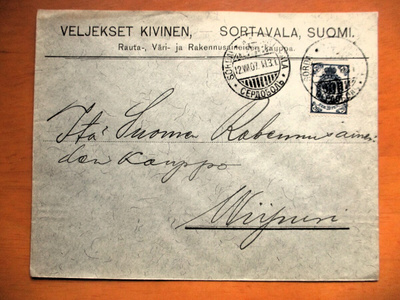 VELJEKSET KIVINEN, SORTAVALA, SUOMI.
Rauta-, Väri- ja Rakennusaineiden kauppa.
12 VII 07
СЕРДОБОЛЬ
Itä Suomen Rakennusainei-
den Kauppa
Wiipuri